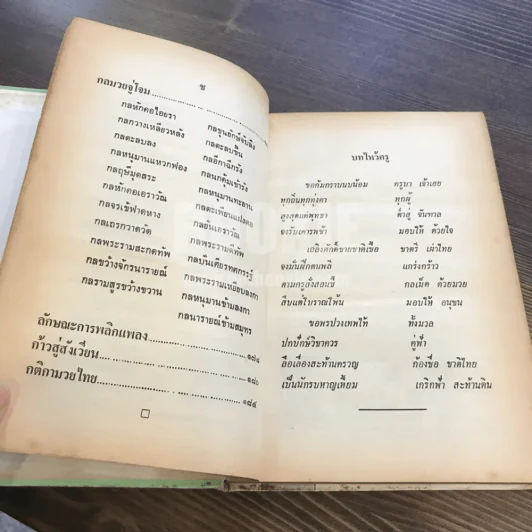 ช
กลมวยจู่โจม
กลหักคอไอยรา
กลขุนยักษ์จับลิง
กลกวางเหลียวหลัง
กลตะลบขึ้น
กลตะลบลง
กลอีกาฉีกรัง
กลหนุมานแหวกฟอง
กลคนคุ้มเข้ารัง
กลฤๅษีมุดสระ
กลหนุมานทะยาน
กลหักคอเอราวัณ
กลตะเพียนแฝงตอ
กลจรเข้ฟาดหาง
กลยันเอราวัณ
กลเถรกวาดวัด
กลพระรามตีทัพ
กลพระรามสะกดทัพ
กลบั่นเศียรทศกัณฐ์
กลขว้างจักรนารายณ์
กลพระรามเหยียบลงกา
กลรามสูรขว้างขวาน
กลหนุมานข้ามลงกา
กลนารายณ์ข้ามสมุทร
ลักษณะการพลิกแพลง
ก้าวสู่สังเวียน
กติกามวยไทย ๑๘๔
บทไหว้ครู
ขอก้มกราบนบน้อม ครูบา เจ้าเอย
ทุกถิ่นทุกทุ่งคา ทุกผู้
สูงสุดแต่พุทธา ต่ำสู่ จัณฑาล
จงรับเคารพข้า มอบให้ ด้วยใจ
เถลิงศักดิ์ชายชาติเชื้อ ชาตรี เผ่าไทย
จงมั่นฝึกตนพลี แกร่งกร้าว
ตามครูสั่งสอนชี้ กลเม็ด ด้วยมวย
สืบแต่โบราณโพ้น มอบให้ อนุชน
ขอพรปวงเทพไท้ ทั้งมวล
ปกปักษ์วิชาควร คู่ฟ้า
ลือเลื่องสะท้านครวญ ก้องชื่อ ชาติไทย
เป็นนักรบหาญเหี้ยม เกริกฟ้า สะท้านดิน